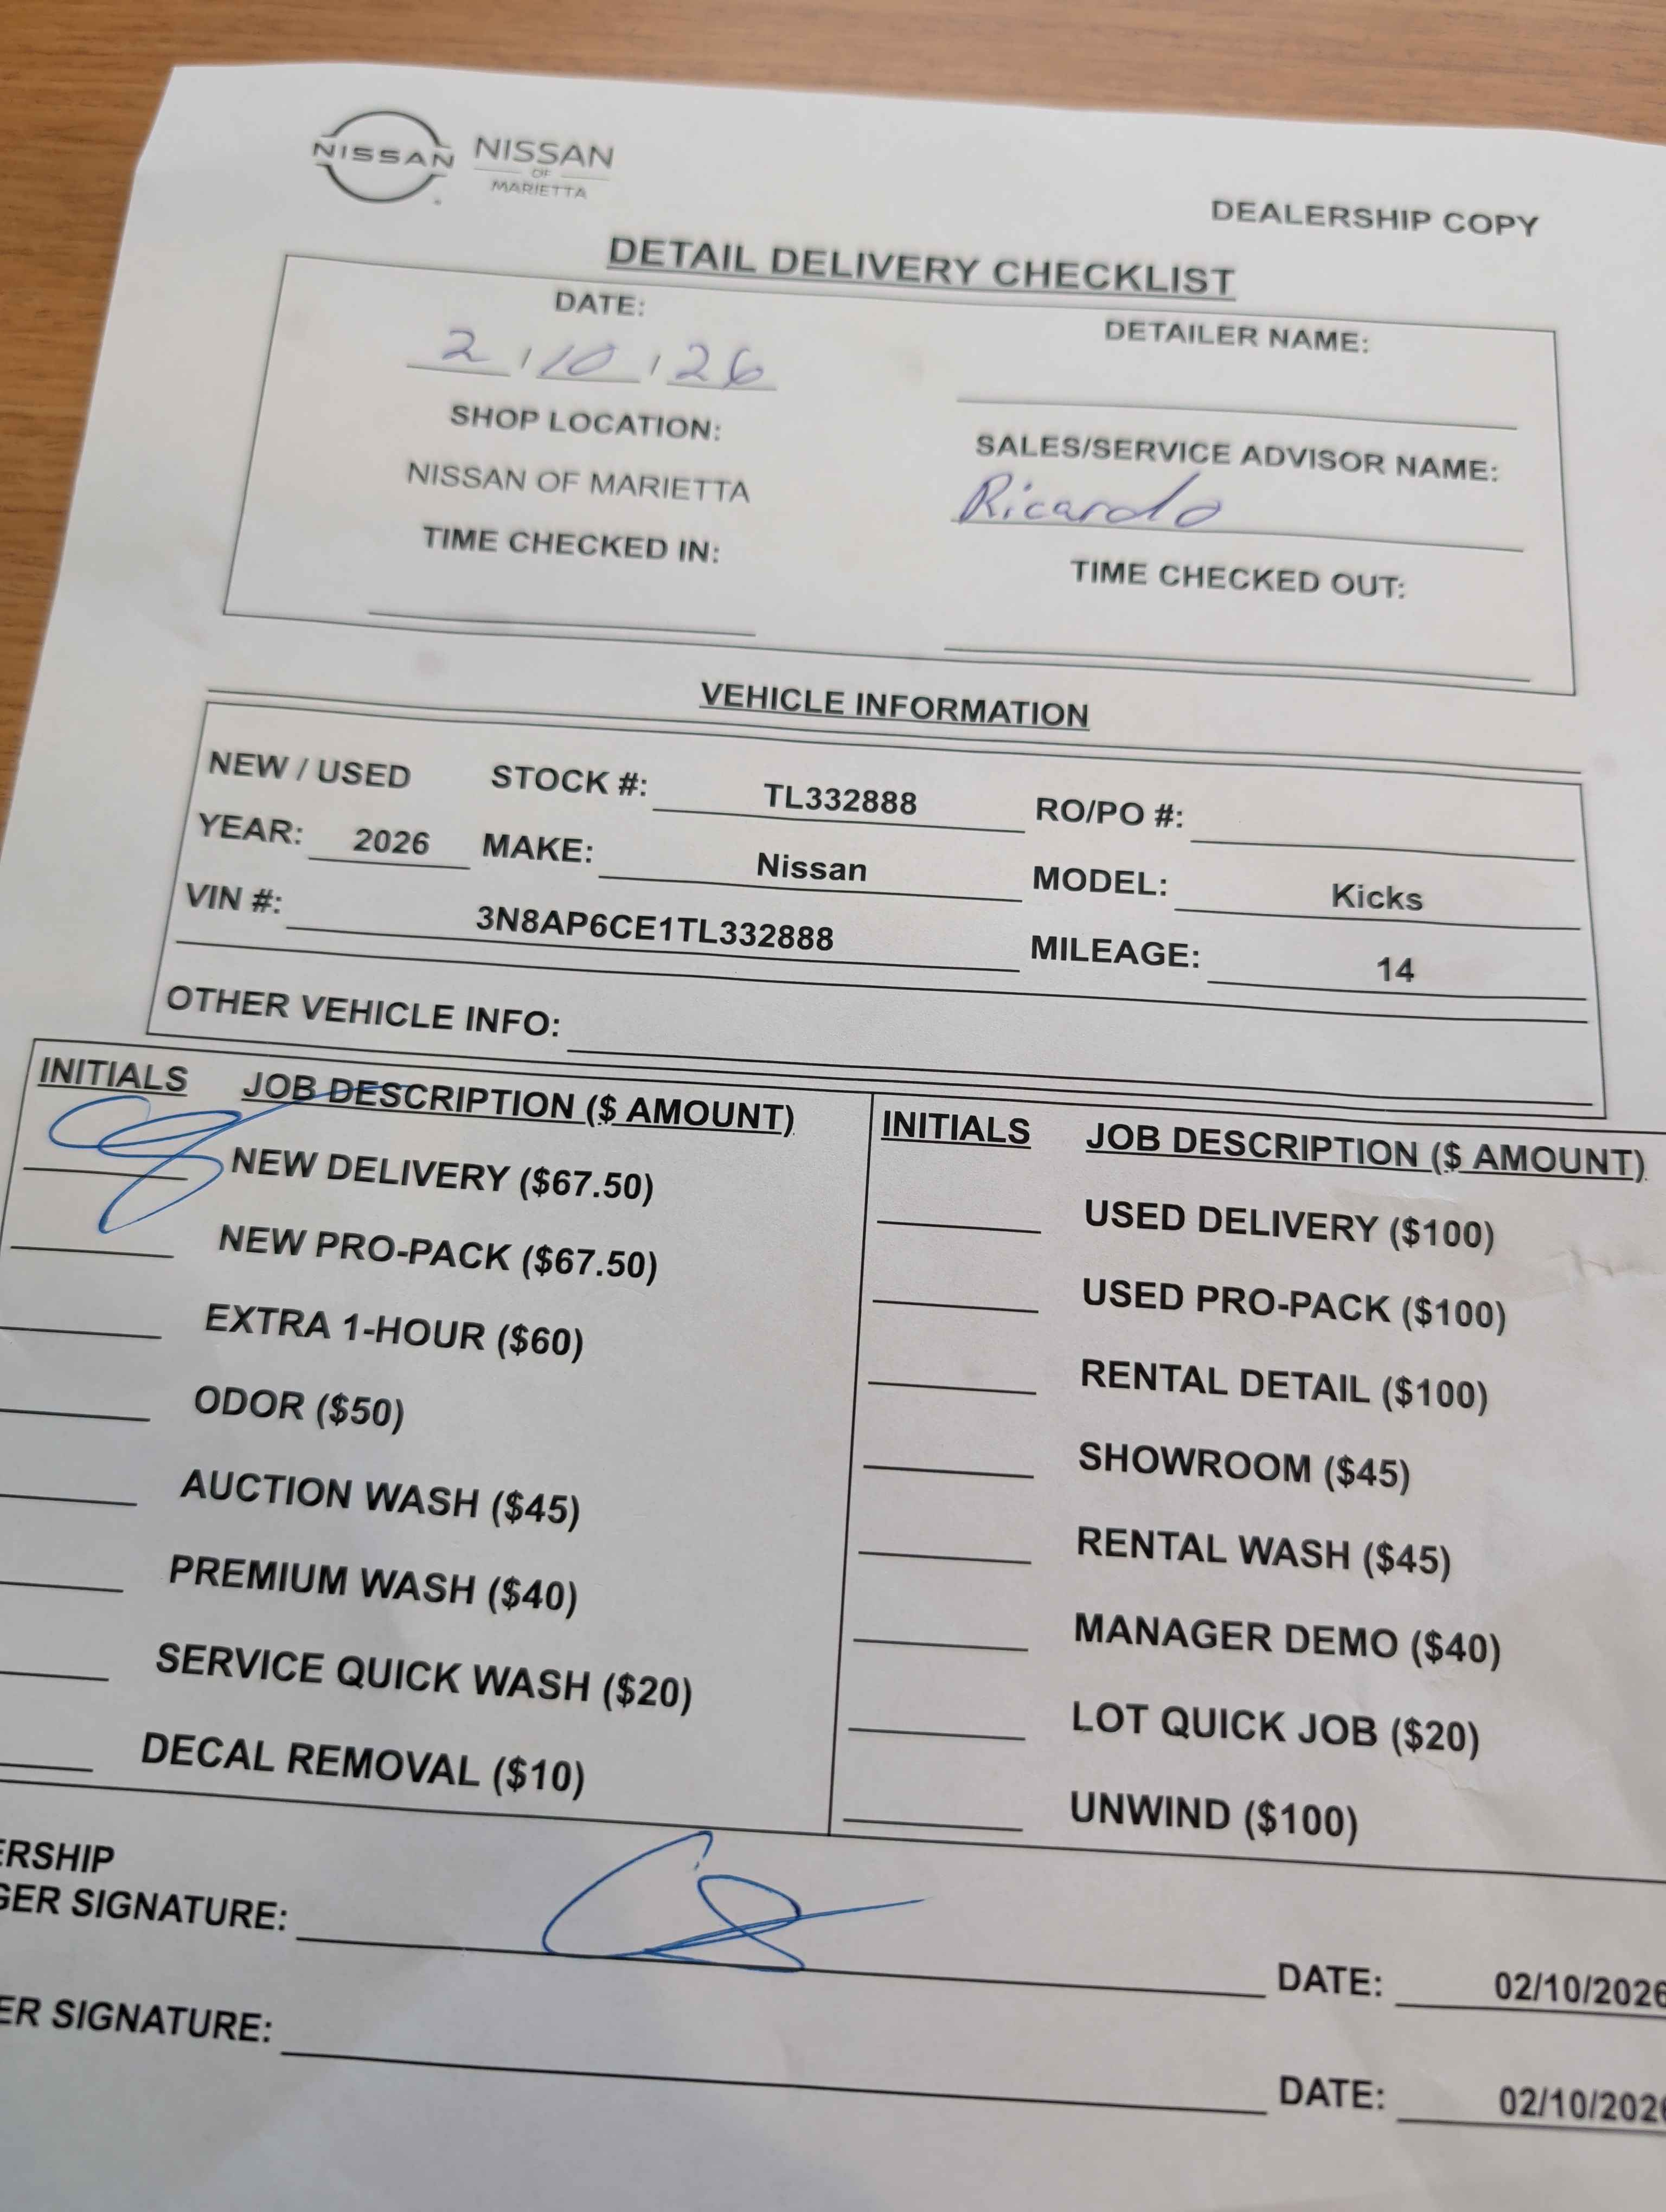 NISSAN NISSAN
OF
MARIETTA
DEALERSHIP COPY
DETAIL DELIVERY CHECKLIST
DATE:
2/10/26
SHOP LOCATION:
NISSAN OF MARIETTA
TIME CHECKED IN:
DETAILER NAME:
SALES/SERVICE ADVISOR NAME:
Ricardo
TIME CHECKED OUT:
VEHICLE INFORMATION
NEW / USED STOCK #: TL332888 RO/PO #:
YEAR: 2026 MAKE: Nissan MODEL: Kicks
VIN #: 3N8AP6CE1TL332888 MILEAGE: 14
OTHER VEHICLE INFO:
INITIALS JOB DESCRIPTION ($ AMOUNT)
NEW DELIVERY ($67.50)
NEW PRO-PACK ($67.50)
EXTRA 1-HOUR ($60)
ODOR ($50)
AUCTION WASH ($45)
PREMIUM WASH ($40)
SERVICE QUICK WASH ($20)
DECAL REMOVAL ($10)
INITIALS JOB DESCRIPTION ($ AMOUNT)
USED DELIVERY ($100)
USED PRO-PACK ($100)
RENTAL DETAIL ($100)
SHOWROOM ($45)
RENTAL WASH ($45)
MANAGER DEMO ($40)
LOT QUICK JOB ($20)
UNWIND ($100)
ERSHIP
GER SIGNATURE: DATE: 02/10/2026
ER SIGNATURE: DATE: 02/10/202